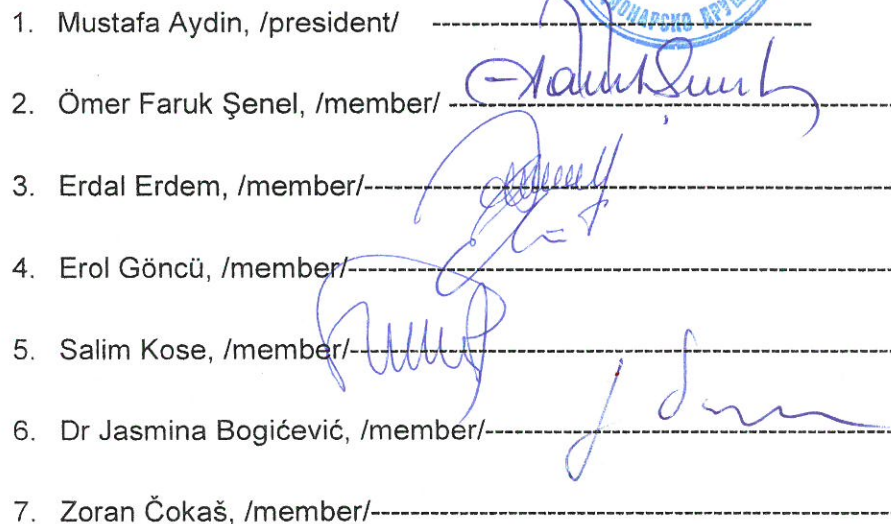 1. Mustafa Aydin, /president/
2. Ömer Faruk Şenel, /member/
3. Erdal Erdem, /member/
4. Erol Göncü, /member/
5. Salim Kose, /member/
6. Dr Jasmina Bogićević, /member/
7. Zoran Čokaš, /member/